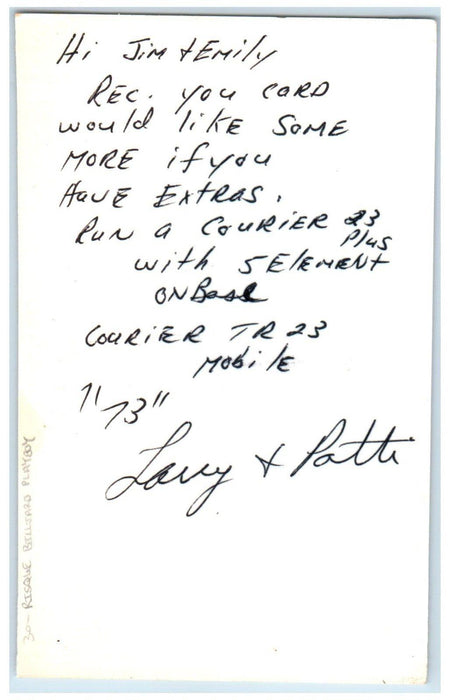 Hi Jim + Emily
REC. you CARD
would like SOME
MORE if you
HAVE EXTRAS.
RUN a COURIER 23
Plus
with 5 ElEMENT
ON Base
COURIER TR 23
MobilE
"73"
Larry + Patti
30- RISQUE BILLIARD PLAYBOY